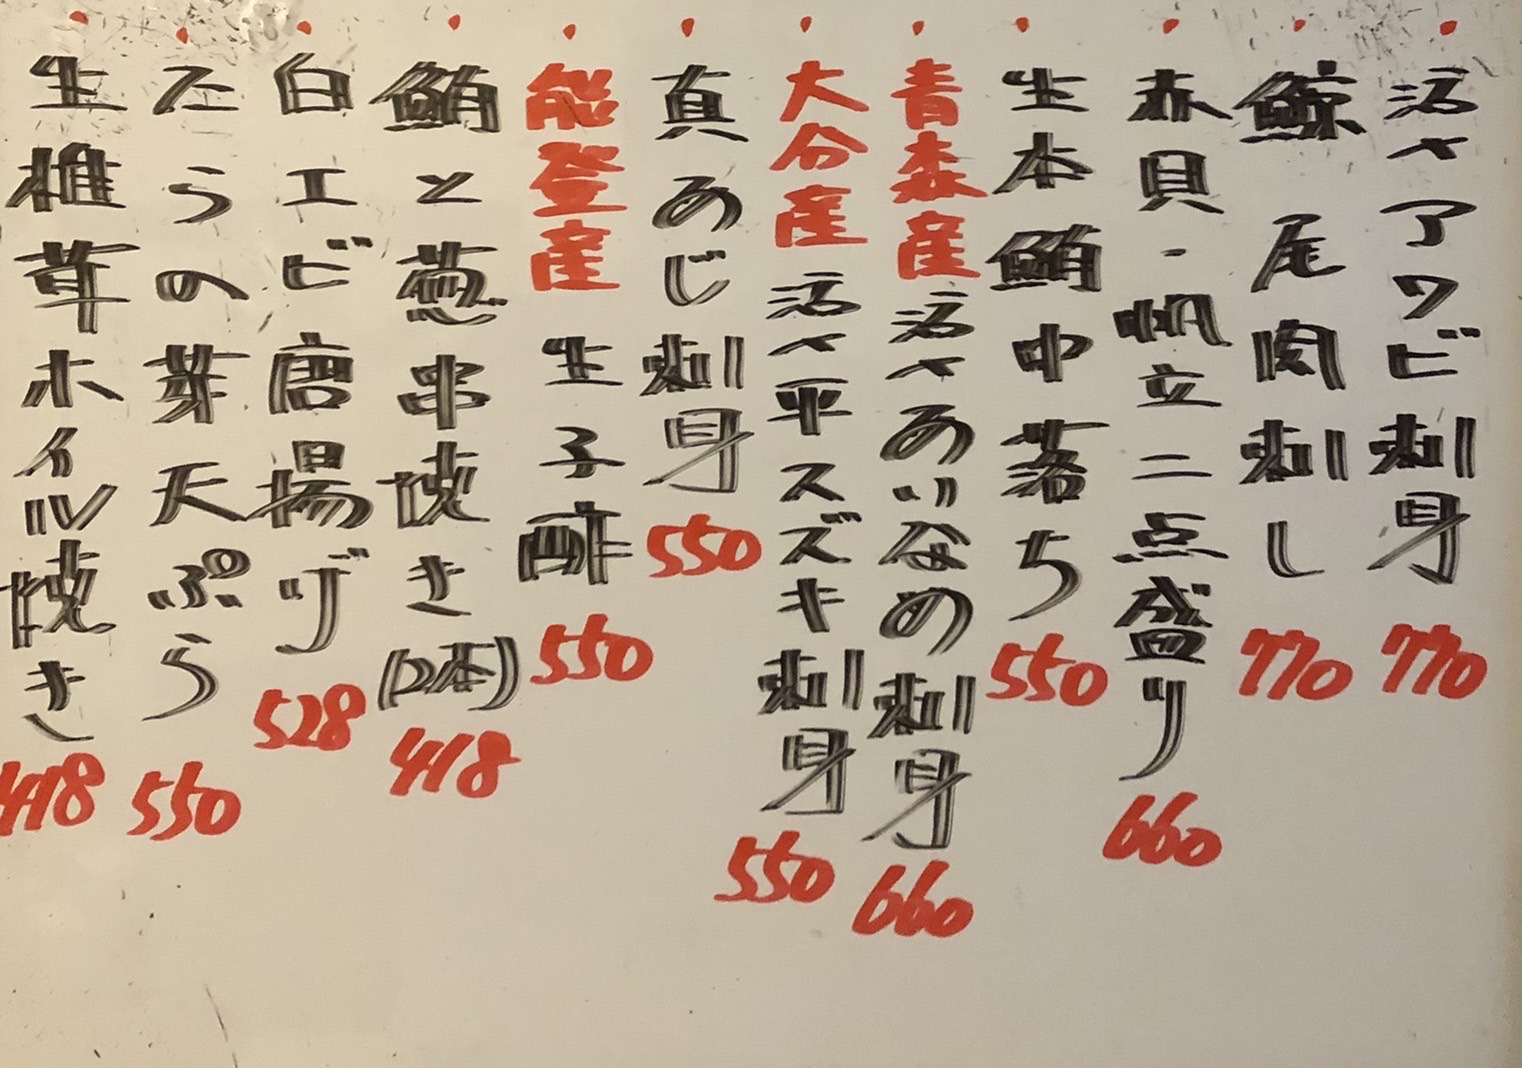 活〆アワビ刺身 770
鯨 尾肉刺し 770
赤貝・帆立二点盛り 660
生本鮪中落ち 550
青森産 活〆あいなめ刺身 660
大分産 活〆平スズキ刺身 550
真あじ刺身 550
能登産 生子酢 550
鮪と葱串焼き(2本) 418
白エビ唐揚げ 528
たらの芽天ぷら 550
生椎草ホイル焼き 418